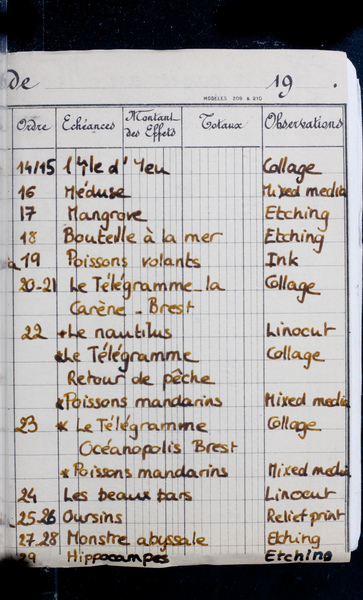 de 19 .
MODELES 209 & 210
Ordre Echéances Montant des Effets Totaux Observations
14/15 l'Yle d'Yeu Collage
16 Méduse Mixed media
17 Mangrove Etching
18 Bouteille à la mer Etching
19 Poissons volants Ink
20-21 Le Télégramme_la Collage
Carène _ Brest
22 *Le nautilus Linocut
*Le Télégramme Collage
Retour de pêche
*Poissons mandarins Mixed media
23 * Le Télégramme Collage
Océanopolis Brest
* Poissons mandarins Mixed media
24 Les beaux bars Linocut
25-26 Oursins Relief print
27-28 Monstre abyssale Etching
29 Hippocampes Etching